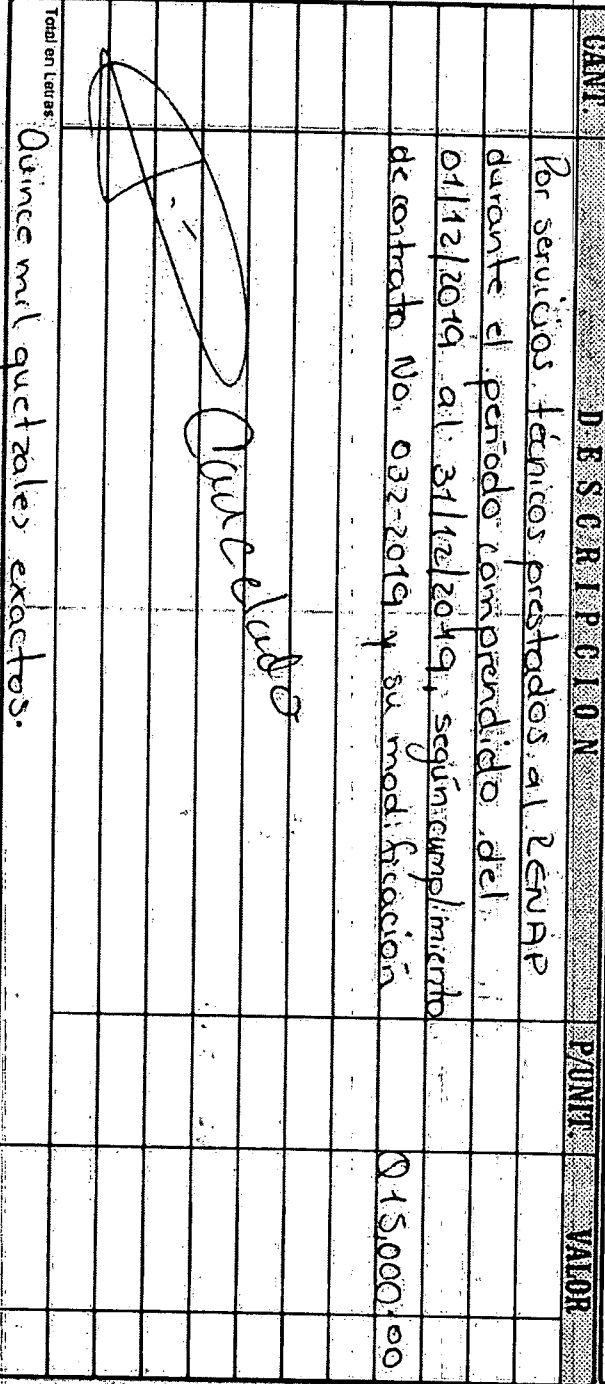 CANT. DESCRIPCION P/UNIT. VALOR
Por servicios técnicos prestados al RENAP
durante el período comprendido del
01/12/2019 al 31/12/2019, según cumplimiento
de contrato No. 032-2019 y su modificación Q15,000.00
Cancelado
Total en Letras: Quince mil quetzales exactos.